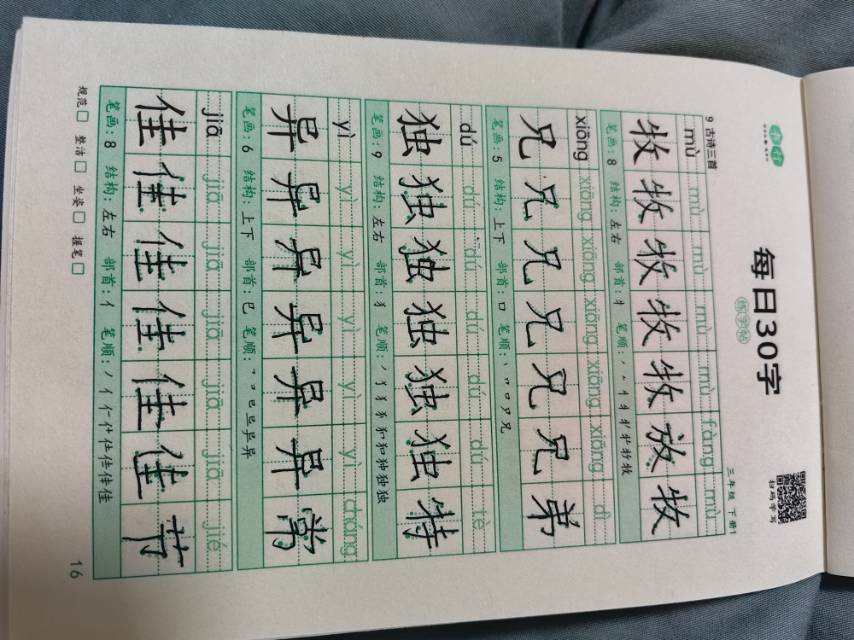 每日30字
练字帖
扫码学习
9 古诗三首
三年级 下册
mù mù mù mù mù fàng mù
牧 牧 牧 牧 牧 放 牧
笔画:8 结构:左右 部首:牜 笔顺:
xiōng xiōng xiōng xiōng xiōng xiōng dì
兄 兄 兄 兄 兄 兄 弟
笔画:5 结构:上下 部首:口 笔顺:
dú dú dú dú dú dú tè
独 独 独 独 独 独 特
笔画:9 结构:左右 部首:犭 笔顺:
yì yì yì yì yì yì cháng
异 异 异 异 异 异 常
笔画:6 结构:上下 部首:巳 笔顺:
jiā jiā jiā jiā jiā jiā jié
佳 佳 佳 佳 佳 佳 节
笔画:8 结构:左右 部首:亻 笔顺:
规范 整洁 坐姿 握笔
16